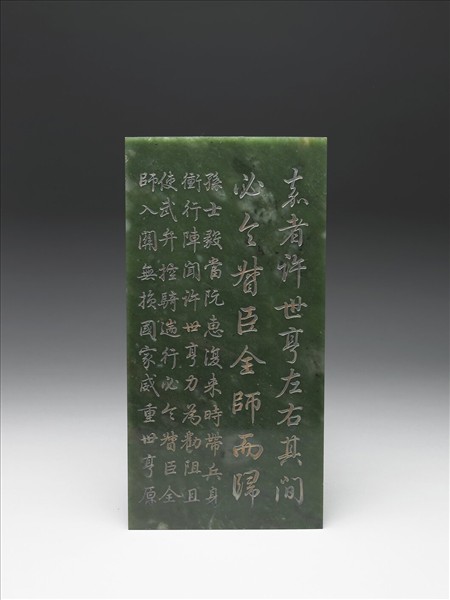 嘉者許世亨左右其間
必令督臣全師而歸
孫士毅當阮惠復来時帶兵身
衝行陣聞許世亨力為勸阻且
使武弁控騎遄行必令督臣全
師入關無損國家威重世亨原